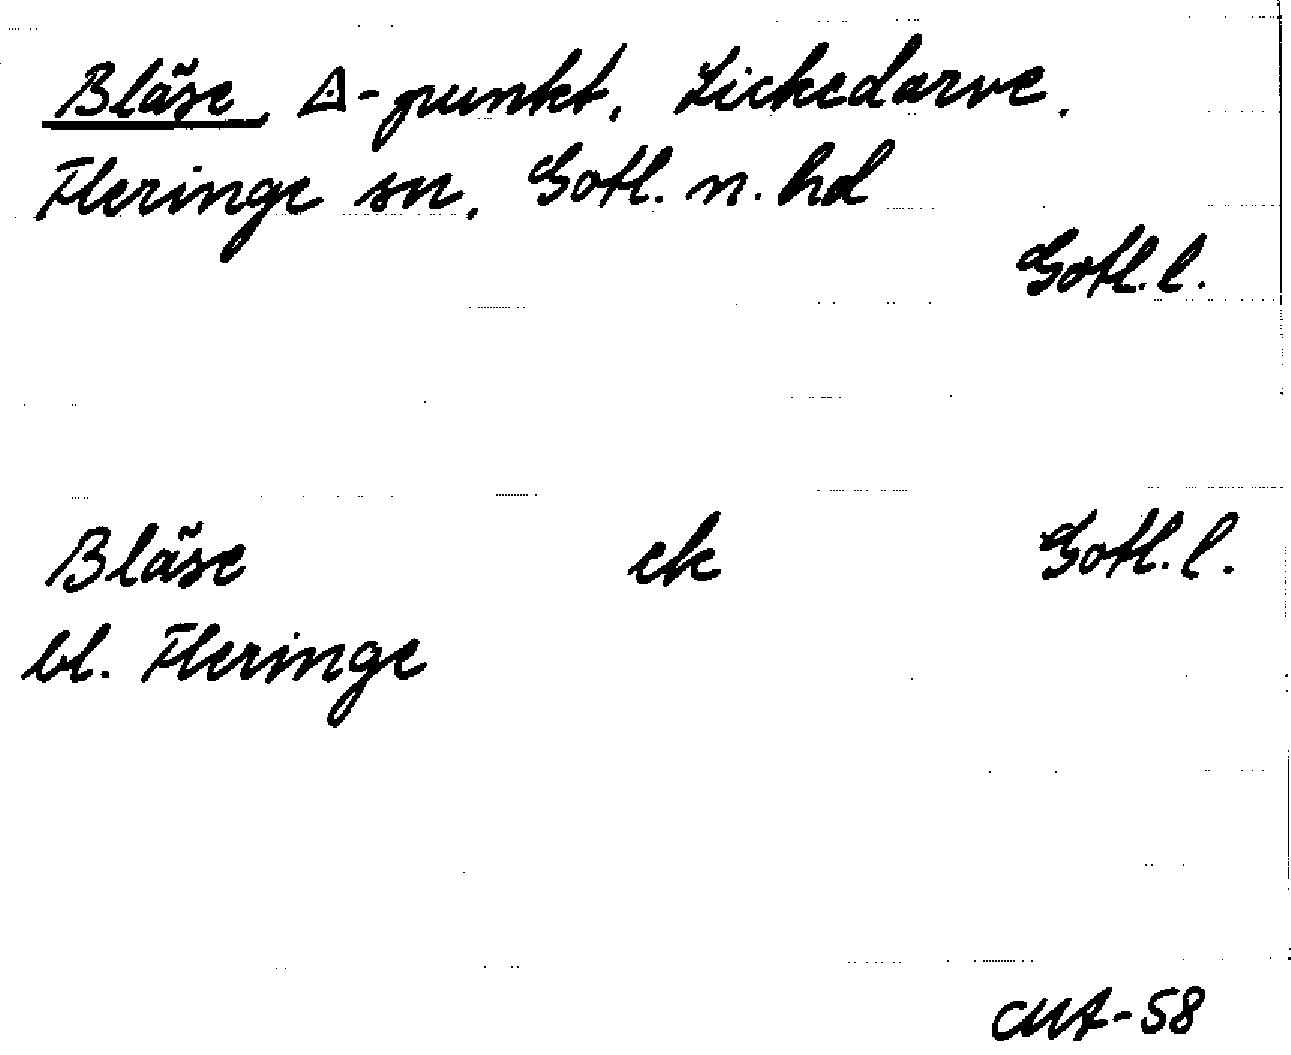 Bläse, △-punkt, Lickedarve,
Fleringe sn, Gotl. n. hd
Gotl. l.
Bläse ek Gotl. l.
bl. Fleringe
CMA-58